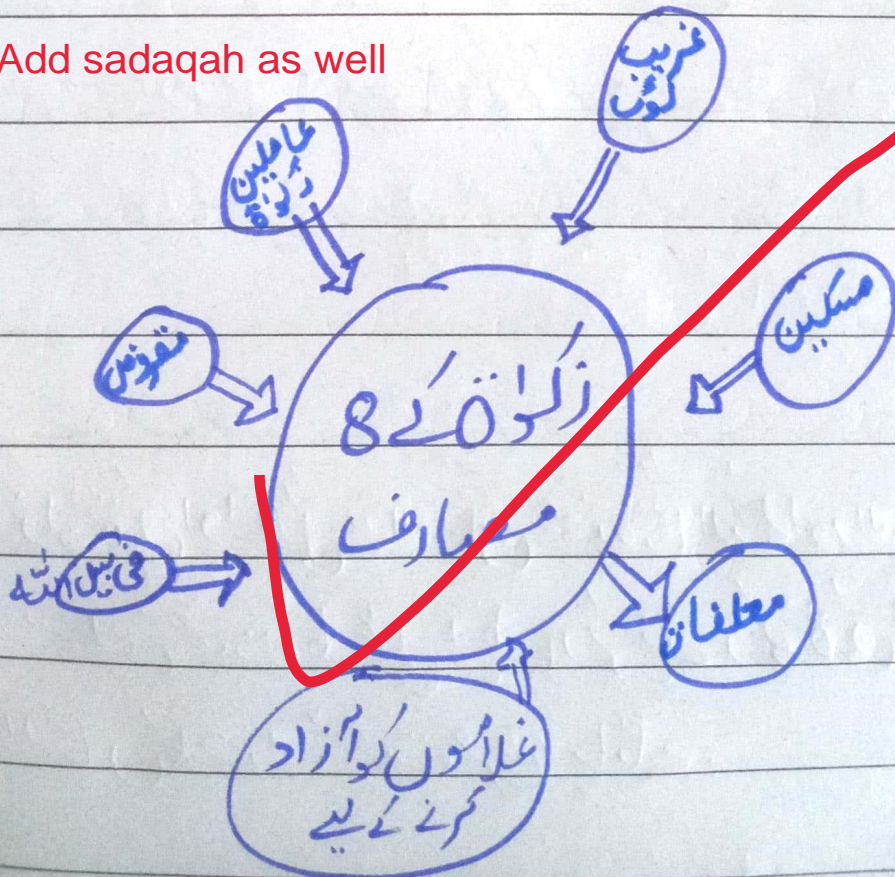 Add sadaqah as well
غریب
لوگ
عاملین
زکوٰۃ
مسکین
مقروض
زکوٰۃ کے 8
مصارف
فی سبیل اللہ
معلفات
غلاموں کو آزاد
کرنے کے لیے